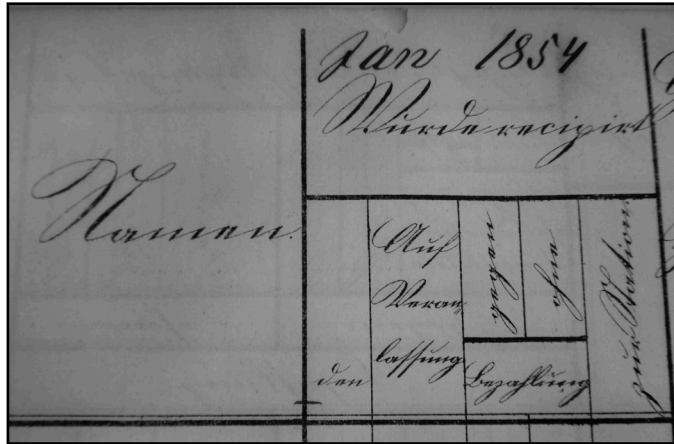 Jan 1854
Wurde recipirt
Namen.
den
Auf
Veran-
lassung
gegen
ohne
Bezahlung
zur Station